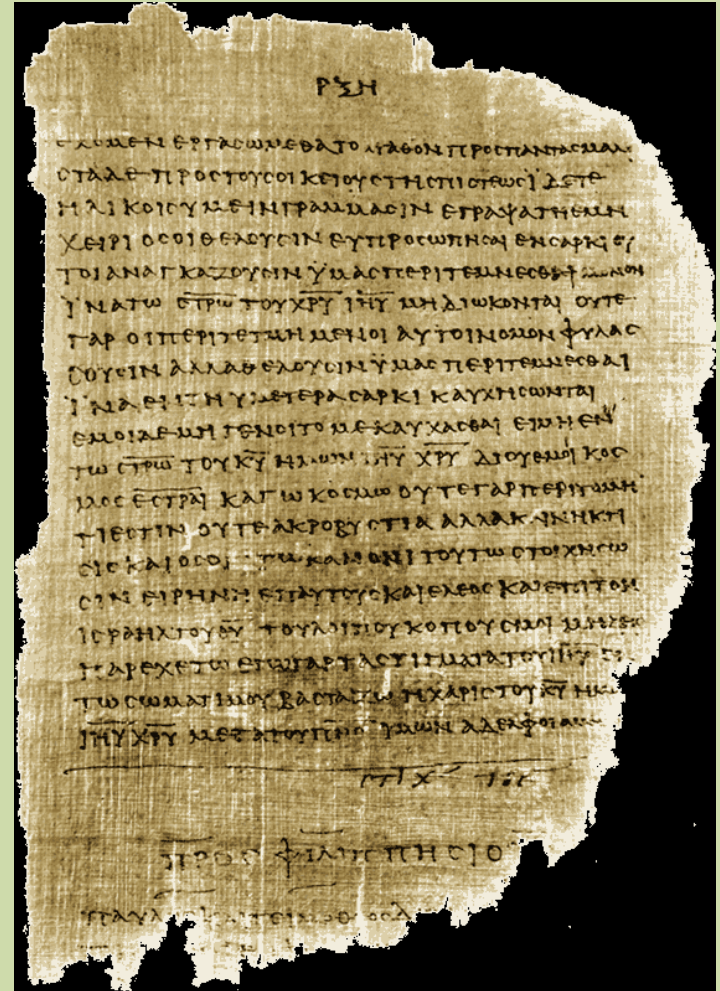 ΡΞΗ
ΕΧΟΜΕΝ ΕΡΓΑϹΩΜΕΘΑ ΤΟ ΑΓΑΘΟΝ ΠΡΟϹ ΠΑΝΤΑϹ ΜΑΛΙ
ϹΤΑ ΔΕ ΠΡΟϹ ΤΟΥϹ ΟΙΚΕΙΟΥϹ ΤΗϹ ΠΙϹΤΕΩϹ ΪΔΕΤΕ
ΗΛΙΚΟΙϹ ΥΜΕΙΝ ΓΡΑΜΜΑϹΙΝ ΕΓΡΑΨΑ ΤΗ ΕΜΗ
ΧΕΙΡΙ ΟϹΟΙ ΘΕΛΟΥϹΙΝ ΕΥΠΡΟϹΩΠΗϹΑΙ ΕΝ ϹΑΡΚΙ ΟΥ
ΤΟΙ ΑΝΑΓΚΑΖΟΥϹΙΝ ΫΜΑϹ ΠΕΡΙΤΕΜΝΕϹΘΑΙ ΜΟΝΟΝ
ΪΝΑ ΤΩ Ϲ̅Τ̅Ρ̅Ω̅ ΤΟΥ Χ̅Ρ̅Υ̅ Ι̅Η̅Υ̅ ΜΗ ΔΙΩΚΟΝΤΑΙ ΟΥΤΕ
ΓΑΡ ΟΙ ΠΕΡΙΤΕΤΜΗΜΕΝΟΙ ΑΥΤΟΙ ΝΟΜΟΝ ΦΥΛΑϹ
ϹΟΥϹΙΝ ΑΛΛΑ ΘΕΛΟΥϹΙΝ ΫΜΑϹ ΠΕΡΙΤΕΜΝΕϹΘΑΙ
ΪΝΑ ΕΝ ΤΗ ΥΜΕΤΕΡΑ ϹΑΡΚΙ ΚΑΥΧΗϹΩΝΤΑΙ
ΕΜΟΙ ΔΕ ΜΗ ΓΕΝΟΙΤΟ ΜΕ ΚΑΥΧΑϹΘΑΙ ΕΙ ΜΗ ΕΝ
ΤΩ Ϲ̅Τ̅Ρ̅Ω̅ ΤΟΥ Κ̅Υ̅ ΗΜΩΝ Ι̅Η̅Υ̅ Χ̅Ρ̅Υ̅ ΔΙ ΟΥ ΕΜΟΙ ΚΟϹ
ΜΟϹ Ε̅Ϲ̅Τ̅Ρ̅Α̅Ι̅ ΚΑΓΩ ΚΟϹΜΩ ΟΥΤΕ ΓΑΡ ΠΕΡΙΤΟΜΗ
ΤΙ ΕϹΤΙΝ ΟΥΤΕ ΑΚΡΟΒΥϹΤΙΑ ΑΛΛΑ ΚΑΙΝΗ ΚΤΙ
ϹΙϹ ΚΑΙ ΟϹΟΙ ΤΩ ΚΑΝΟΝΙ ΤΟΥΤΩ ϹΤΟΙΧΗϹΩ
ϹΙΝ ΕΙΡΗΝΗ ΕΠ ΑΥΤΟΥϹ ΚΑΙ ΕΛΕΟϹ ΚΑΙ ΕΠΙ ΤΟΝ
ΙϹΡΑΗΛ ΤΟΥ Θ̅Υ̅ ΤΟΥ ΛΟΙΠΟΥ ΚΟΠΟΥϹ ΜΟΙ ΜΗΔΕΙϹ
ΠΑΡΕΧΕΤΩ ΕΓΩ ΓΑΡ ΤΑ ϹΤΙΓΜΑΤΑ ΤΟΥ Ι̅Η̅Υ̅ ΕΝ
ΤΩ ϹΩΜΑΤΙ ΜΟΥ ΒΑϹΤΑΖΩ Η ΧΑΡΙϹ ΤΟΥ Κ̅Υ̅ ΗΜ
Ι̅Η̅Υ̅ Χ̅Ρ̅Υ̅ ΜΕΤΑ ΤΟΥ Π̅Ν̅Ο̅Ϲ̅ ΫΜΩΝ ΑΔΕΛΦΟΙ ΑΜΗΝ
ϹΤΙΧ ΤΟΕ
ΠΡΟϹ ΦΙΛΙΠΠΗϹΙΟ
ΠΑΥΛΟϹ ΚΑΙ ΤΕΙΜΟΘΕΟϹ Δ